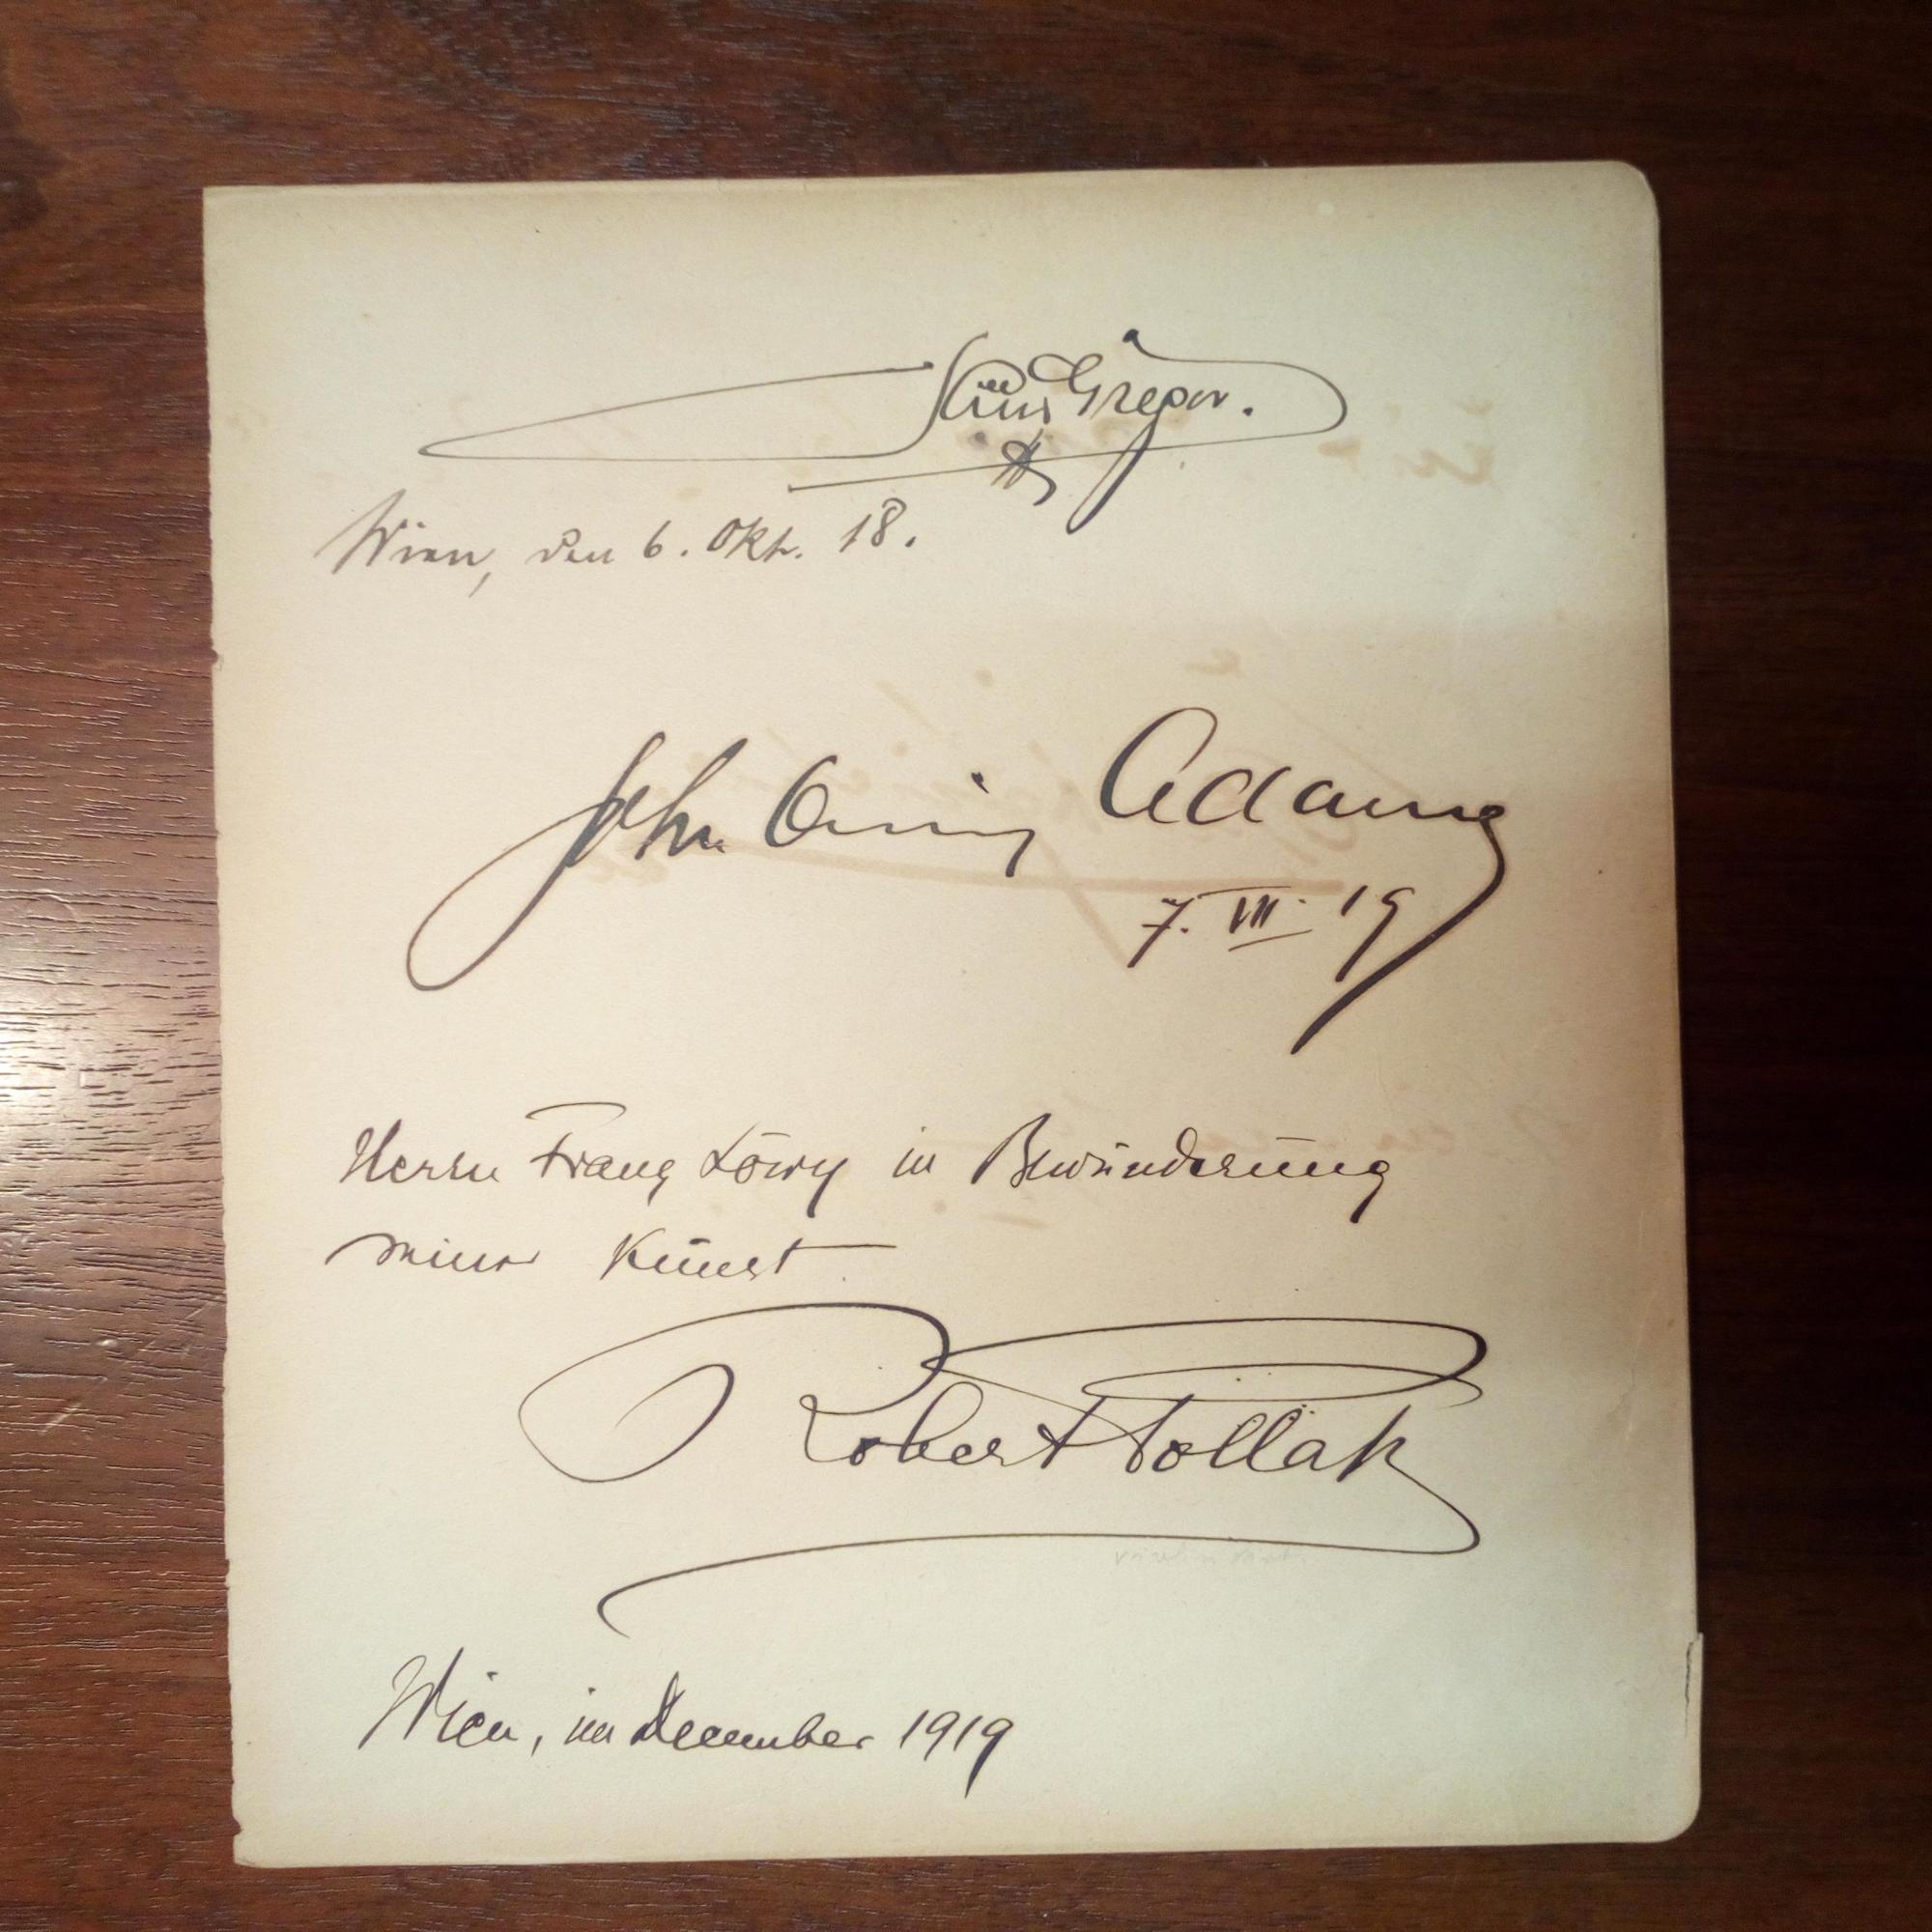 Hans Gregor.
Wien, den 6. Okt. 18.
John Quincy Adams
7. VII. 19
Herrn Franz Löwy in Bewunderung
seiner Kunst
Robert Pollak
Wien, im December 1919